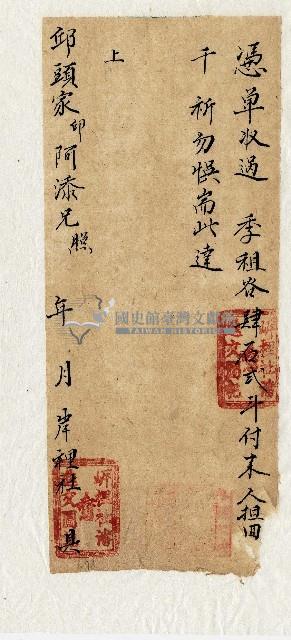 憑單收過 季租谷肆石弍斗付來人担回
千祈勿悞耑此達
上
邱頭家印阿添兄照
年 月 岸裡社 具
國史館臺灣文獻館
TAIWAN HISTORICA